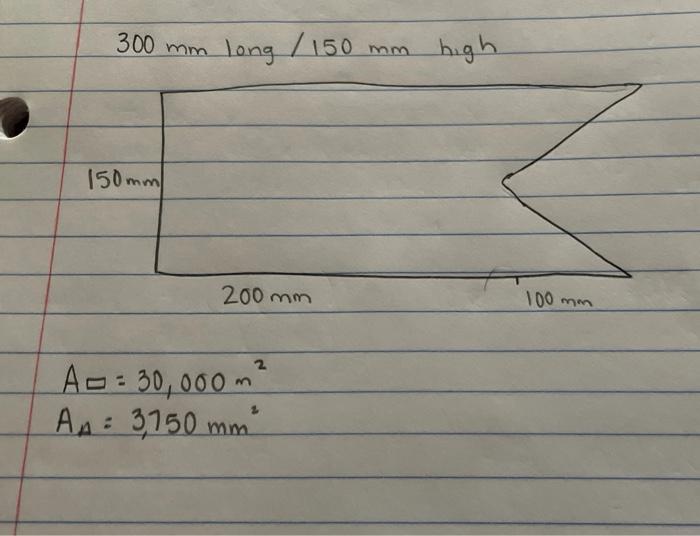 300 mm long / 150 mm high
150mm
200 mm
100 mm
A▭ = 30,000 m²
A△ = 3,750 mm²